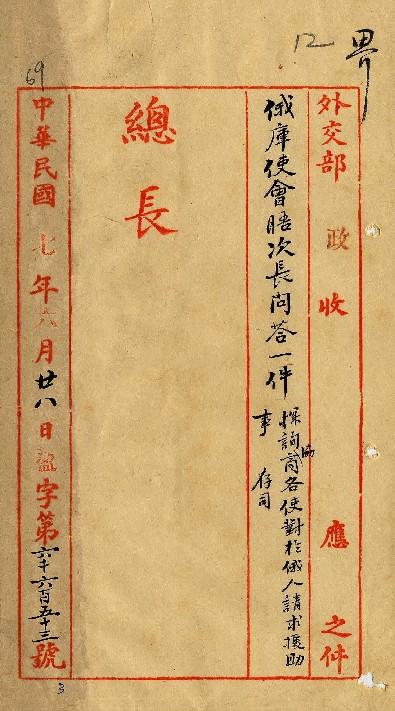 12
界
69
外交部 政 收 應 之件
俄庫使會晤次長問答一件
探詢協商各使對於俄人請求援助
事 存司
總長
中華民國七年六月廿八日盈字第六千六百五十三號
3